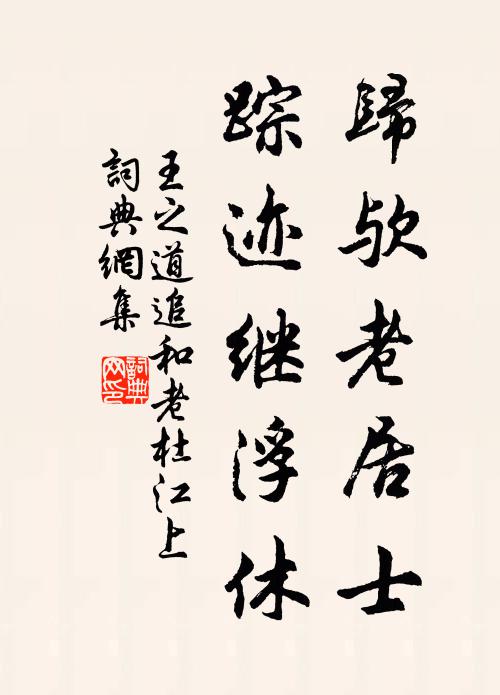 歸欤老居士
踪迹继浮休
王之道追和老杜江上
詞典網集
詞典網印